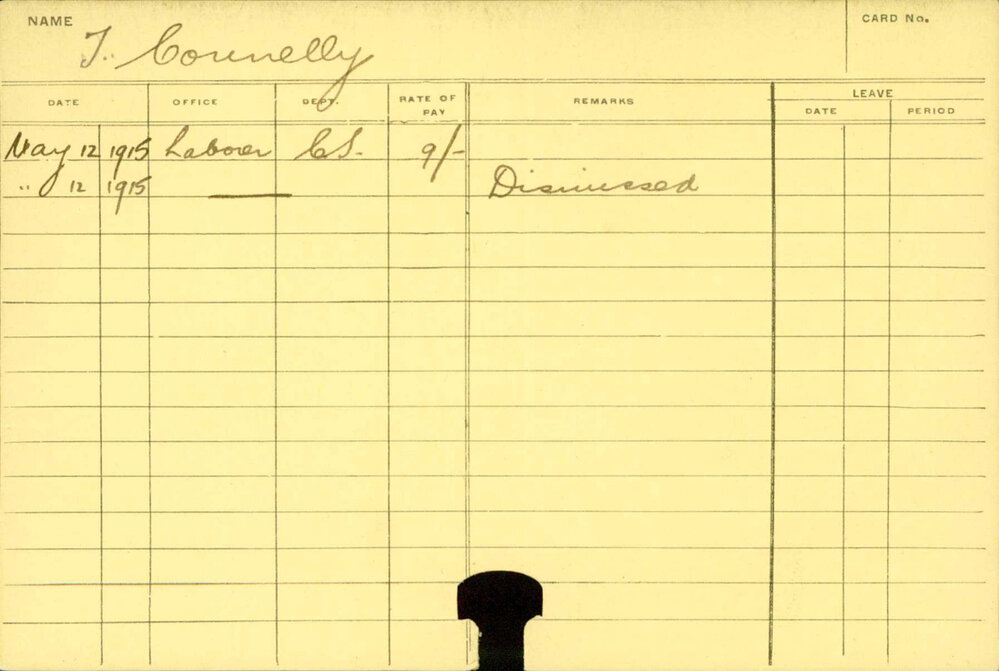 NAME
CARD No.
T. Connelly
DATE OFFICE DEPT. RATE OF PAY REMARKS LEAVE
DATE PERIOD
May 12 1915 Laborer C.S. 9/-
" 12 1915 —— Dismissed